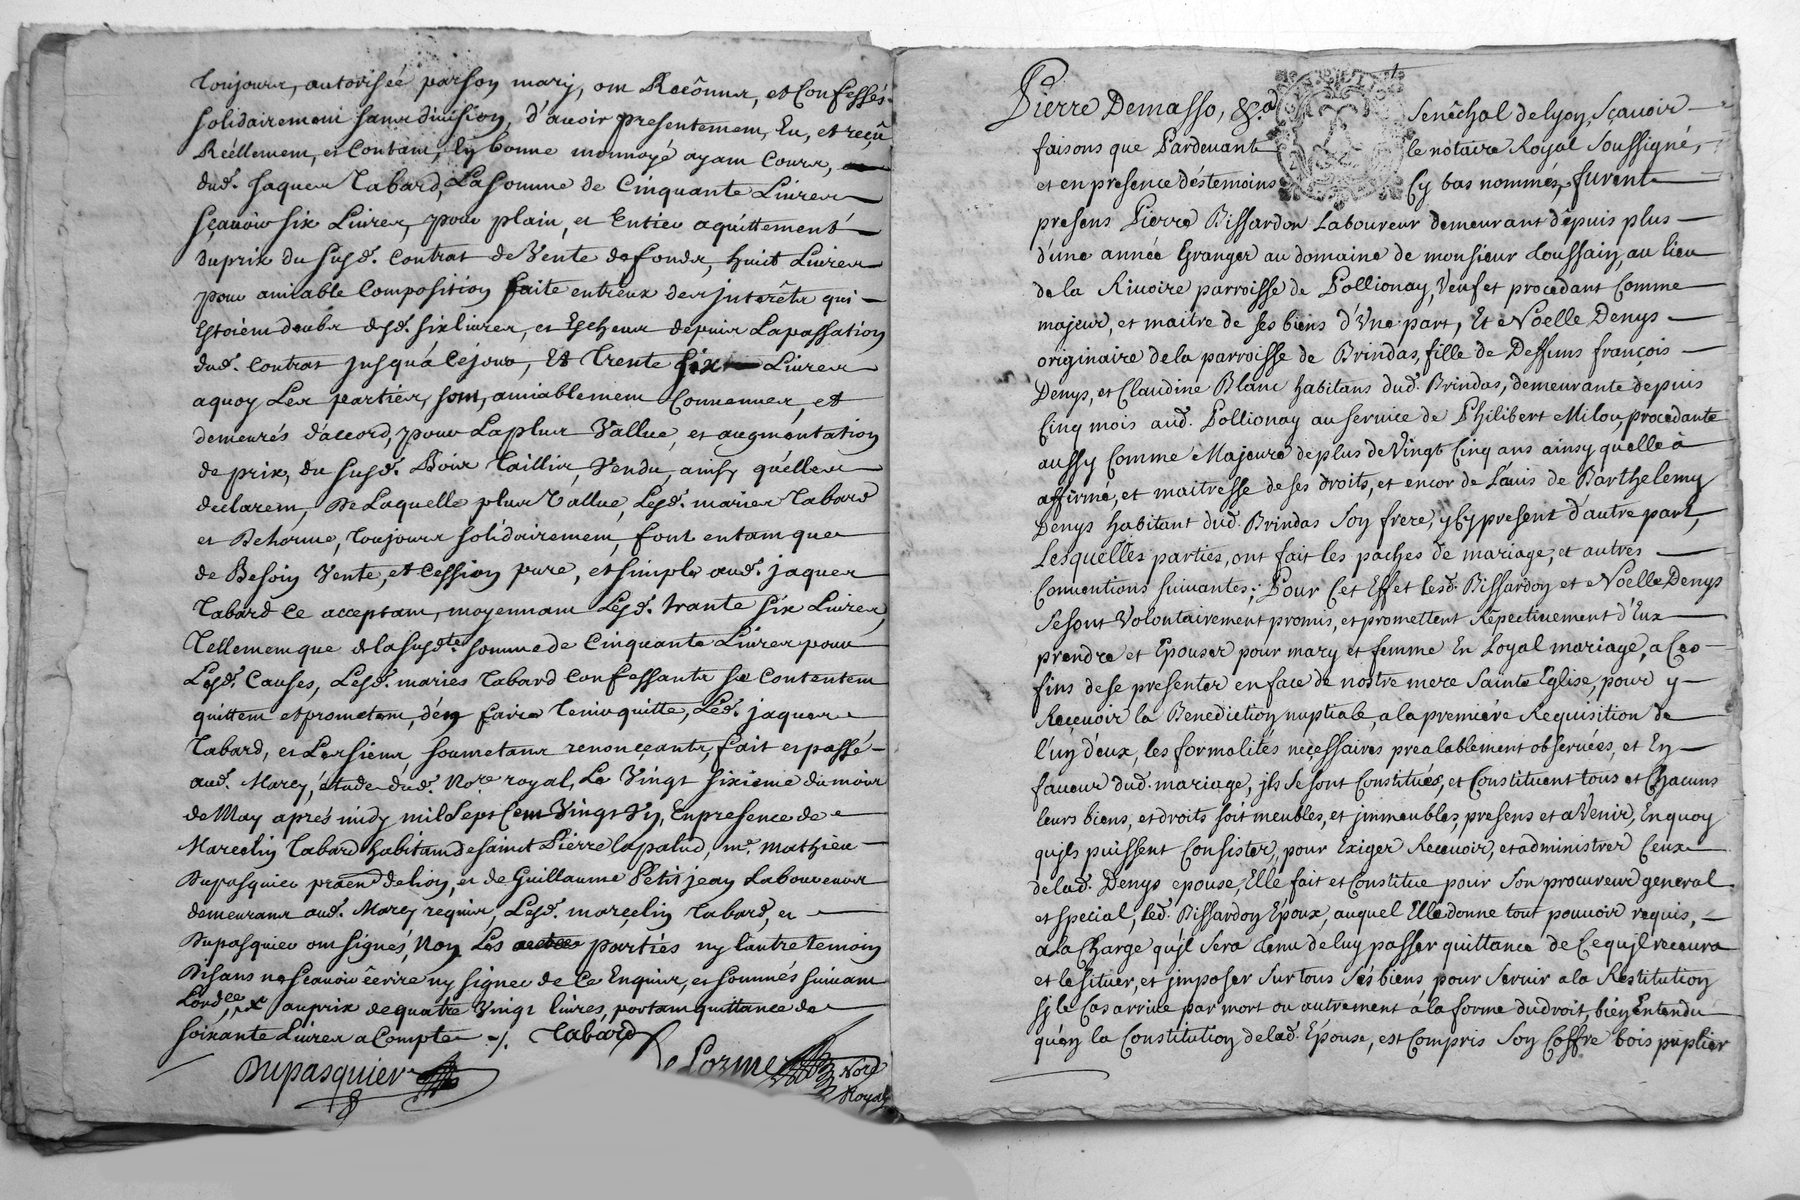 toujours, autorisée par son mary, ont Recônnus, et Confessés
solidairement sans division, d'avoir presentement, Eu, et reçû
Réellement, et Contant, En bonne monnoyé ayant Cours,
dud. Jaques Tabard, La somme de Cinquante Livres
sçavoir six Livres, pour plain, et Entier aquittement
du prix du susd. Contrat de Vente de fonds, huit Livres
pour amiable Composition faite entreux des jnterêts qui
Estoient deubs desd. six livres, et Escheus depuis La passation
dud. Contrat jusqu'a Cejour, Et Trente six Livres
aquoy Les parties, sont, amiablement Convenues, et
demeurés d'accord, pour La plus Vallue, et augmentation
de prix, du susd. Bois Taillis, Vendu, ainsy qu'elles
declarent, De Laquelle plus Vallue, Lesd. mariés Tabard
et Dehorme, toujours solidairement, font entant que
de Besoin Vente, et Cession pure, et simple aud. jaques
Tabard Ce acceptant, moyennant Lesd. trante six Livres,
Tellement que de la susdte. somme de Cinquante Livres pour
Lesd. Causes, Lesd. mariés Tabard Confessants se Contentent
quittent et prometent, d'en faire Tenir quitte, Led. jaques
Tabard, et Les siens, soumettans renonçeants, fait et passé
aud. Marcy, étude dud. Nore. royal, Le Vingt sixieme du mois
de May aprés midy mil Sept Cent Vingt Un, En presence de
Marcelin Tabard habitant de sainct Pierre la palud, me. Mathieu
Dupasquier praen. de lion, et de Guillaume Petit jean Laboureur
demeurans aud. Marcy requis, Lesd. marçelin Tabard, et
Dupasquier ont signés, Non Les parties ny l'autre temoin
Disans ne sçavoir êcrire ny signer de Ce Enquis, et sommés suivant
Lordce. au prix de quatre Vingt livres, portant quittance de
soixante Livres a Compte ./. Tabard
Dupasquier
De Lorme Nore
Royal
Pierre Demasso, &a. Senêchal de lyon, Sçavoir
faisons que Pardevant le notaire Royal Soussigné,
et en présence des temoins Cy bas nommés, furent
presens Pierre Bissardon Laboureur demeurant dépuis plus
d'une année Granger au domaine de monsieur Toussain, au lieu
de la Rivoire parroisse de Pollionay, Veuf et procedant Comme
majeur, et maitre de ses biens d'Une part, Et Noelle Denys
originaire de la parroisse de Brindas, fille de Deffuns françois
Denys, et Claudine Blanc habitans dud. Brindas, demeurante depuis
Cinq mois aud. Pollionay au service de Philibert Milou, procedante
aussy Comme Majeure de plus de Vingt Cinq ans ainsy quelle à
affirmé, et maitresse de ses droits, et encor de L'avis de Barthelemy
Denys habitant dud. Brindas Son frere, jcy present d'autre part,
Lesquelles parties, ont fait les paches de mariage, et autres
Conventions suivantes; Pour Cet Effet lesd. Bissardon et Noelle Denys
Se sont Volontairement promis, et promettent Répectivement d'Eux
prendre et Epouser pour mary et femme En Loyal mariage, a Ces
fins de se presenter en face de nostre mere Sainte Eglise, pour y
Reçevoir la Benediction nuptiale, a la première Requisition de
l'un d'eux, les formalités neçessaires prealablement observées, et En
faveur dud. mariage, jls se sont Constitués, et Constituent tous et Chacuns
leurs biens, et droits soit meubles, et jmmeubles, presens et aVenir, En quoy
qujls puissent Consister, pour Exiger Recevoir, et administrer Ceux
de lad. Denys epouse, Elle fait et Constitue pour Son procureur general
et special, led. Bissardon Epoux, auquel Elle donne tout pouvoir requis,
a la Charge qu'jl sera tenu de luy passer quittance de Ce qu'jl recevra
et le situer, et jmposer Sur tous Ses biens pour Servir a la Restitution
Sy le Cas arrive par mort ou autrement à la forme du droit, bien Entendu
qu'en la Constitution de lad. Epouse, est Compris Son Coffre bois puplier